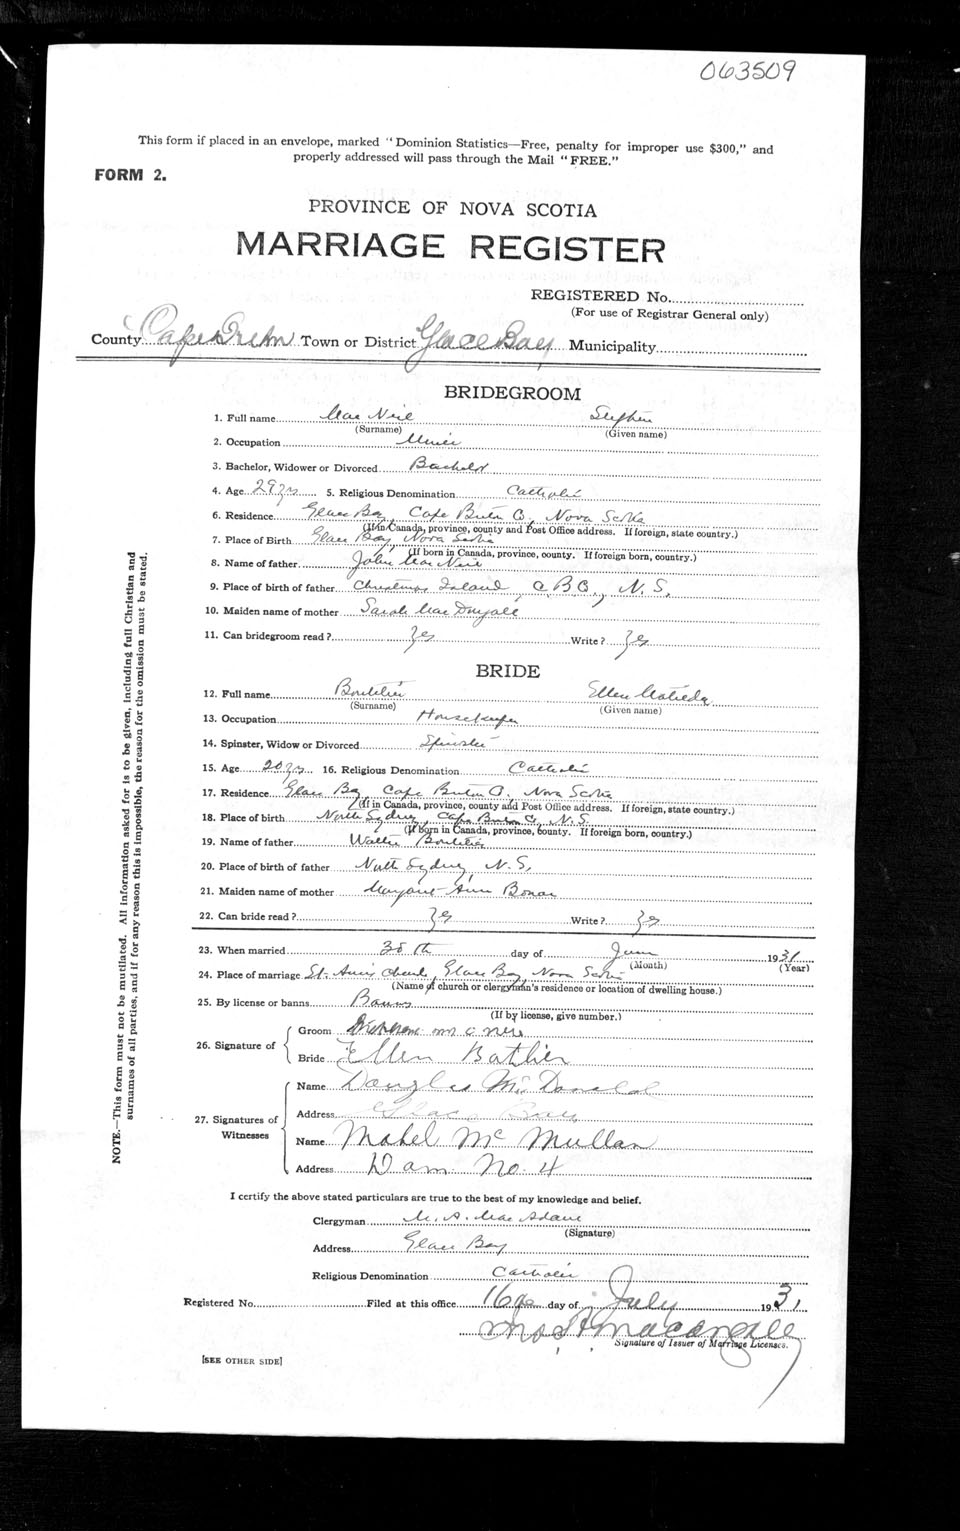 063509
This form if placed in an envelope, marked "Dominion Statistics—Free, penalty for improper use $300," and
properly addressed will pass through the Mail "FREE."
FORM 2.
PROVINCE OF NOVA SCOTIA
MARRIAGE REGISTER
REGISTERED No.
(For use of Registrar General only)
County Cape Breton Town or District Glace Bay Municipality
BRIDEGROOM
1. Full name Mac Neil Stephen
(Surname) (Given name)
2. Occupation Miner
3. Bachelor, Widower or Divorced Bachelor
4. Age 29 yrs 5. Religious Denomination Catholic
6. Residence Glace Bay, Cape Breton Co, Nova Scotia
(If in Canada, province, county and Post Office address. If foreign, state country.)
7. Place of Birth Glace Bay, Nova Scotia
(If born in Canada, province, county. If foreign born, country.)
8. Name of father John Mac Neil
9. Place of birth of father Christmas Island, C.B.Co., N.S.
10. Maiden name of mother Sarah Mac Dougall
11. Can bridegroom read? Yes Write? Yes
BRIDE
12. Full name Boutilier Ellen Matilda
(Surname) (Given name)
13. Occupation Housekeeper
14. Spinster, Widow or Divorced Spinster
15. Age 20 yrs 16. Religious Denomination Catholic
17. Residence Glace Bay, Cape Breton Co, Nova Scotia
(If in Canada, province, county and Post Office address. If foreign, state country.)
18. Place of birth North Sydney, Cape Breton Co, N.S.
(If born in Canada, province, county. If foreign born, country.)
19. Name of father Walter Boutilier
20. Place of birth of father North Sydney, N.S.
21. Maiden name of mother Margaret Ann Bonar
22. Can bride read? Yes Write? Yes
23. When married 30th day of June 1931
(Month) (Year)
24. Place of marriage St. Ann's Church, Glace Bay, Nova Scotia
(Name of church or clergyman's residence or location of dwelling house.)
25. By license or banns Banns
(If by license, give number.)
26. Signature of
Groom mc neil
Bride Ellen Batlier
27. Signatures of Witnesses
Name Douglas McDonald
Address Glace Bay
Name Mabel Mc Mullan
Address Dam No. 4
I certify the above stated particulars are true to the best of my knowledge and belief.
Clergyman M. A. Mac Adam
(Signature)
Address Glace Bay
Religious Denomination Catholic
Registered No. Filed at this office 16th day of July 1931
Signature of Issuer of Marriage Licenses.
[SEE OTHER SIDE]
NOTE.—This form must not be mutilated. All information asked for is to be given, including full Christian and
surnames of all parties, and if for any reason this is impossible, the reason for the omission must be stated.